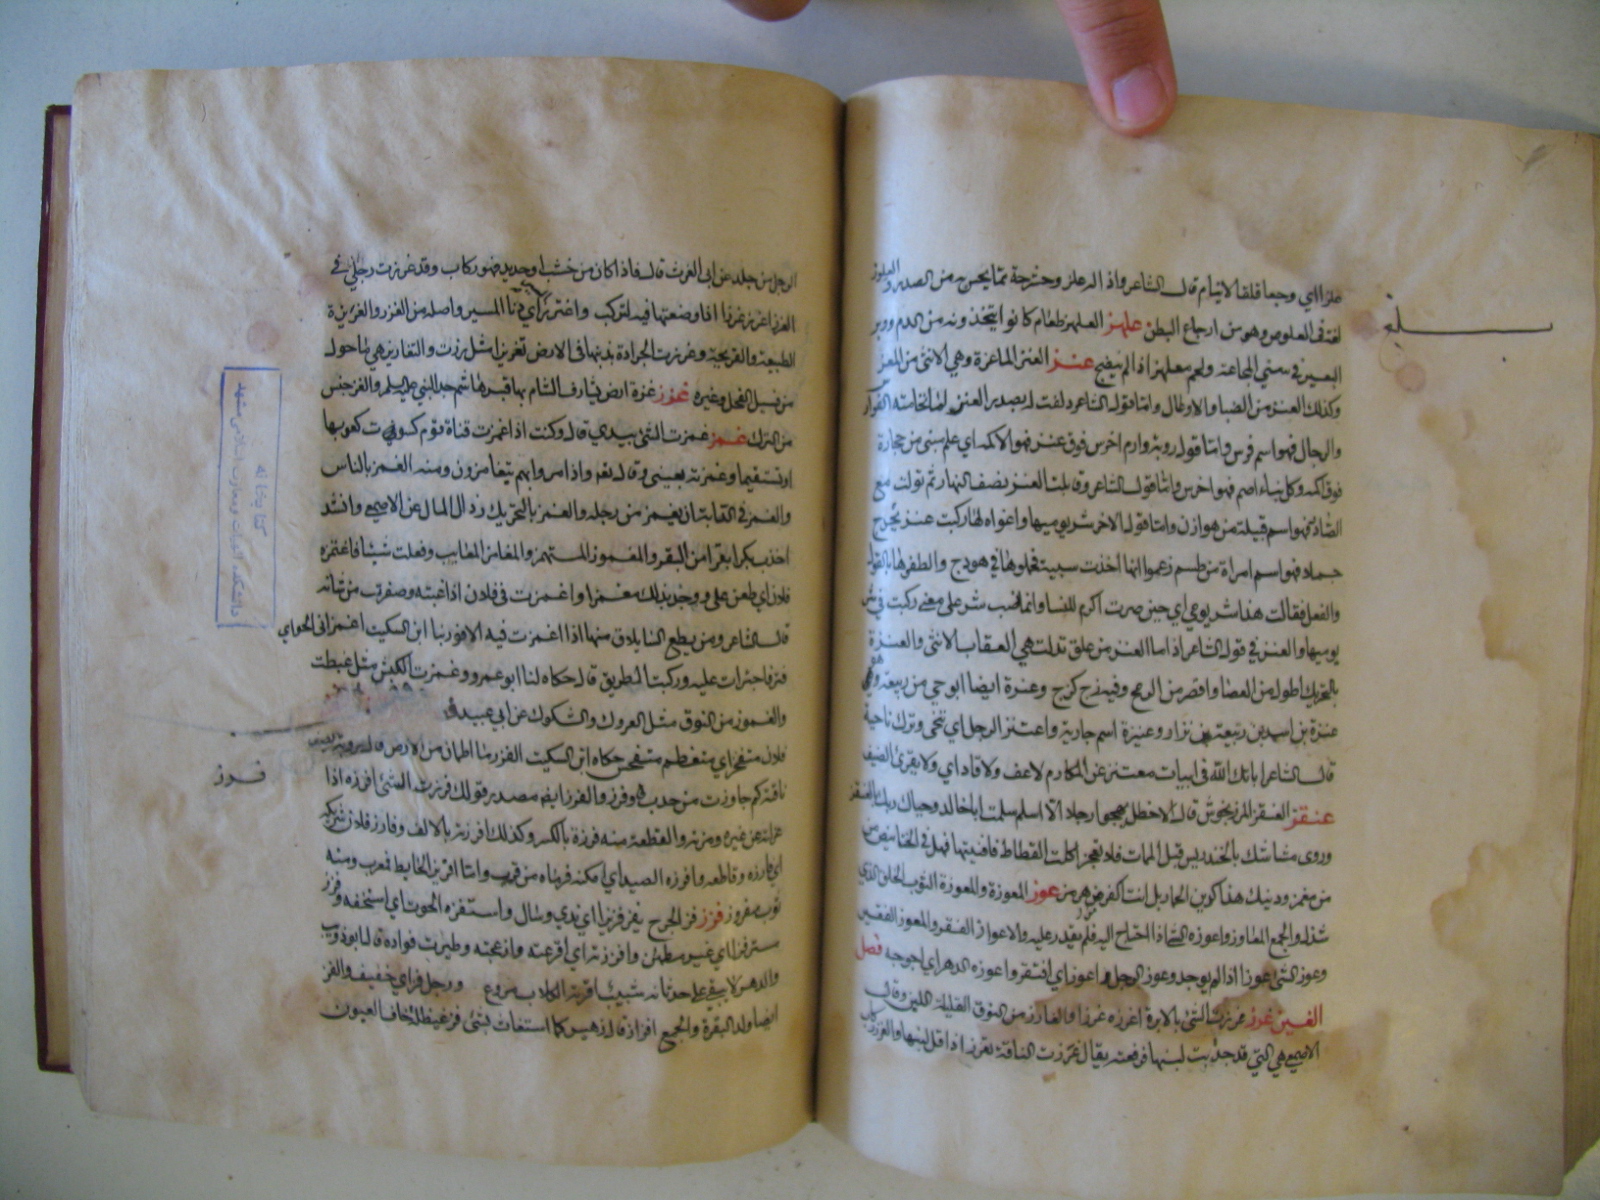 علزا اي وجعا قلقا لا ينام قال الشاعر واذا له علز وحشرجة مما يجيش به من الصدر والعلوز
لغة في العلوص وهو من اوجاع البطن علهز العلهز طعام كانوا يتخذونه من الدم ووبر
البعير في سني المجاعة ولحم معلهز اذا لم ينضج عنز العنز الماعزة وهي الانثى من المعز
وكذلك العنز من الظبا والاوعال واما قول الشاعر دلفت له بصدر العنز لما تحامته الفوارس
والرجال فهو اسم فرس واما قول رؤبة وارم اخرس فوق عنز فهو الاكمة اي علم مبني من حجارة
فوق اكمة وكل بناء اصم فهو اخرس واما قول الشاعر وقاتلت العنز نصف النهار ثم تولت مع
الصادر فهو اسم قبيلة من هوازن واما قول الاخر شر يوميها واغواه لها ركبت عنز بحدج
جملا فهو اسم امراة من طسم زعموا انها اخذت سبية فحملوها في هودج والطفوها بالقول
والفعل فقالت هذا شر يومي اي حين صرت اكرم للسبا وانما نصب شر على معنى ركبت في شر
يوميها والعنز في قول الشاعر اذا ما العنز من ملق تدلت هي العقاب الانثى والعنزة
بالتحريك اطول من العصا واقصر من الرمح وفيه زج كزج وعنزة ايضا ابو حي من ربيعة وهو
عنزة بن اسد بن ربيعة بن نزار وعنيزة اسم جارية واعتنز الرجل اي تنحى وترك ناحية
قال الشاعر اباتك الله في ابيات معتنز عن المكارم لا عف ولا قاد اي ولا يقري الضيف
عنقز العنقز المرزنجوش قال الاخطل يهجو رجلا الا اسلم سلمت ابا خالد وحياك ربك بالعنقز
وروى مشاشك بالخندريس قبل الممات فلا تعجز اكلت القطاط فافنيتها فهل في الخنانيص من
من مغمز ودينك هذا كدين الحمار بل انت اكفر من هرمز عوز المعوزة والمعوزة الثوب الخلق الذي
يبتذل والجمع المعاوز واعوزه الشئ اذا احتاج اليه فلم يقدر عليه والاعواز الفقر والمعوز الفقير
وعوز الشئ عوزا اذا لم يوجد وعوز الرجل واعوز اي افتقر واعوزه الدهر اي احوجه فصل
الغين غرز غرزت الشئ بالابرة اغرزه غرزا والغارز من النوق القليلة اللبن وقال
الاصمعي هي التي قد جذبت لبنها فرفعته يقال غرزت الناقة تغرز اذا قل لبنها والغرز ركاب
الرجل من جلد عن ابي الغوث قال فاذا كان من خشب او حديد فهو ركاب وقد غرزت رجلي في
الغرز اغرز غرزا اذا وضعتها فيه لتركب واغترز اي دنا المسير واصله من الغرز والغريزة
الطبيعة والقريحة وغرزت الجرادة بذنبها في الارض تغريزا مثل رزت والتغاريز هي ما حول
من فسيل النخل وغيره غزز غزة ارض بمشارف الشام بها قبر هاشم جد النبي عليه السلم والغز جنس
من الترك غمز غمزت الشئ بيدي قال وكنت اذا غمزت قناة قوم كسرت كعوبها
او تستقيما وغمزته بعيني وقال تعالى واذا مروا بهم يتغامزون ومنه الغمز بالناس
والغمز في الدابة ان يغمز من رجله والغمز بالتحريك رذال المال عن الاصمعي وانشد
اخذت بكرا نقزا من النقز والمغموز المتهم والمغامز المعايب وفعلت شيئا فاغتمزه
فلان اي طعن علي ووجد بذلك مغمزا واغمزت في فلان اذا عبته وصغرت من شانه
قال الشاعر ومن يطع النسا يلاق منها اذا اغمزن فيه الاقورينا ابن السكيت اغمزني الحر اي
فتر فاجترات عليه وركبت الطريق قال حكاه لنا ابو عمرو وغمزت الكبش مثل غبطت
والغموز من النوق مثل العروك والشكوك عن ابي عبيد
فلان متفجز اي متعظم متفحش حكاه ابن السكيت الفرز ما اطمان من الارض قال رؤبة يصف
ناقته كم جاوزت من حدب وفرز والفرز ايضا مصدر قولك فرزت الشئ افرزه اذا
عزلته عن غيره ومزته والقطعة منه فرزة بالكسر وكذلك افرزته بالالف وفارز فلان شريكه
اي فارزه وقاطعه وافرزه الصيد اي امكنه فرماه من قرب واما افريز الحايط فمعرب ومنه
ثوب مفروز فزز فز الجرح يفز فزيزا اي ندي وسال واستفزه الخوف اي استخفه وقعد
مستفزا اي غير مطمئن وافززته اي افزعته وازعجته وطيرت فواده قال ابو ذويب
والدهر لا يبقى على حدثانه شبب افزته الكلاب مروع ورجل فز اي خفيف والفز
ايضا ولد البقرة والجمع افزاز قال زهير كما استغاث بشئ فز غيطلة خاف العيون
فرز
كتابخانه
دانشكده الهيات و معارف اسلامى مشهد